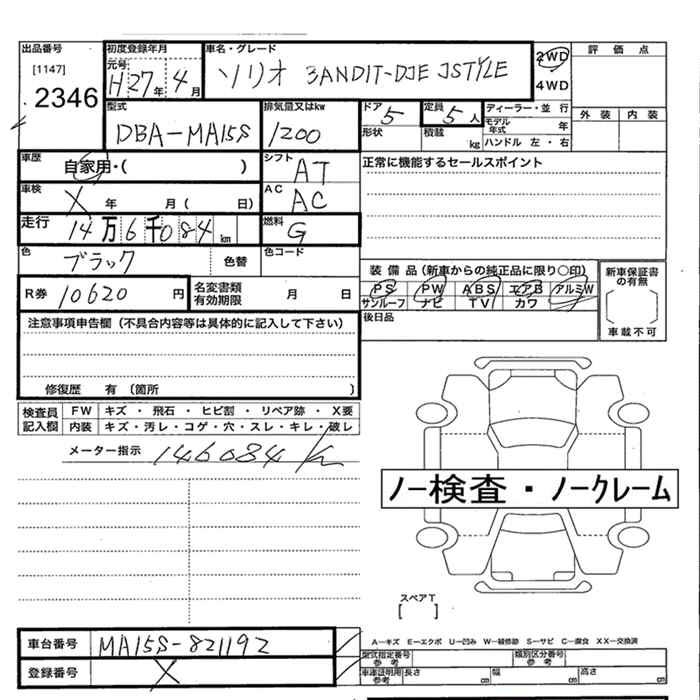 出品番号
[1147]
2346
初度登録年月
元号
H27年4月
車名・グレード
ソリオ BANDIT-DJE JSTYLE
2WD
4WD
評価点
外装 内装
型式
DBA-MA15S
排気量又はkw
1200
ドア
5
形状
定員
5人
積載
kg
ディーラー・並行
モデル年式 年
ハンドル 左・右
車歴
自家用・( )
シフト
AT
正常に機能するセールスポイント
車検
X 年 月( 日)
AC
AC
走行
14万6千084km
燃料
G
色
ブラック
色替
色コード
装備品(新車からの純正品に限り〇印)
PS PW ABS エアB アルミW
サンルーフ ナビ TV カワ
新車保証書の有無
[ ]
車載不可
R券 10620円
名変書類有効期限 月 日
後日品
注意事項申告欄(不具合内容等は具体的に記入して下さい)
修復歴 有 (箇所 )
検査員記入欄
FW キズ・飛石・ヒビ割・リペア跡・X要
内装 キズ・汚レ・コゲ・穴・スレ・キレ・破レ
メーター指示 146084km
ノー検査・ノークレーム
スペアT
[ ]
車台番号 MA15S-821192
登録番号 X
A-キズ E-エクボ U-凹み W-補修跡 S-サビ C-腐食 XX-交換済
型式指定番号参考
類別区分番号参考
車庫証明用参考 長さ cm 幅 cm 高さ cm